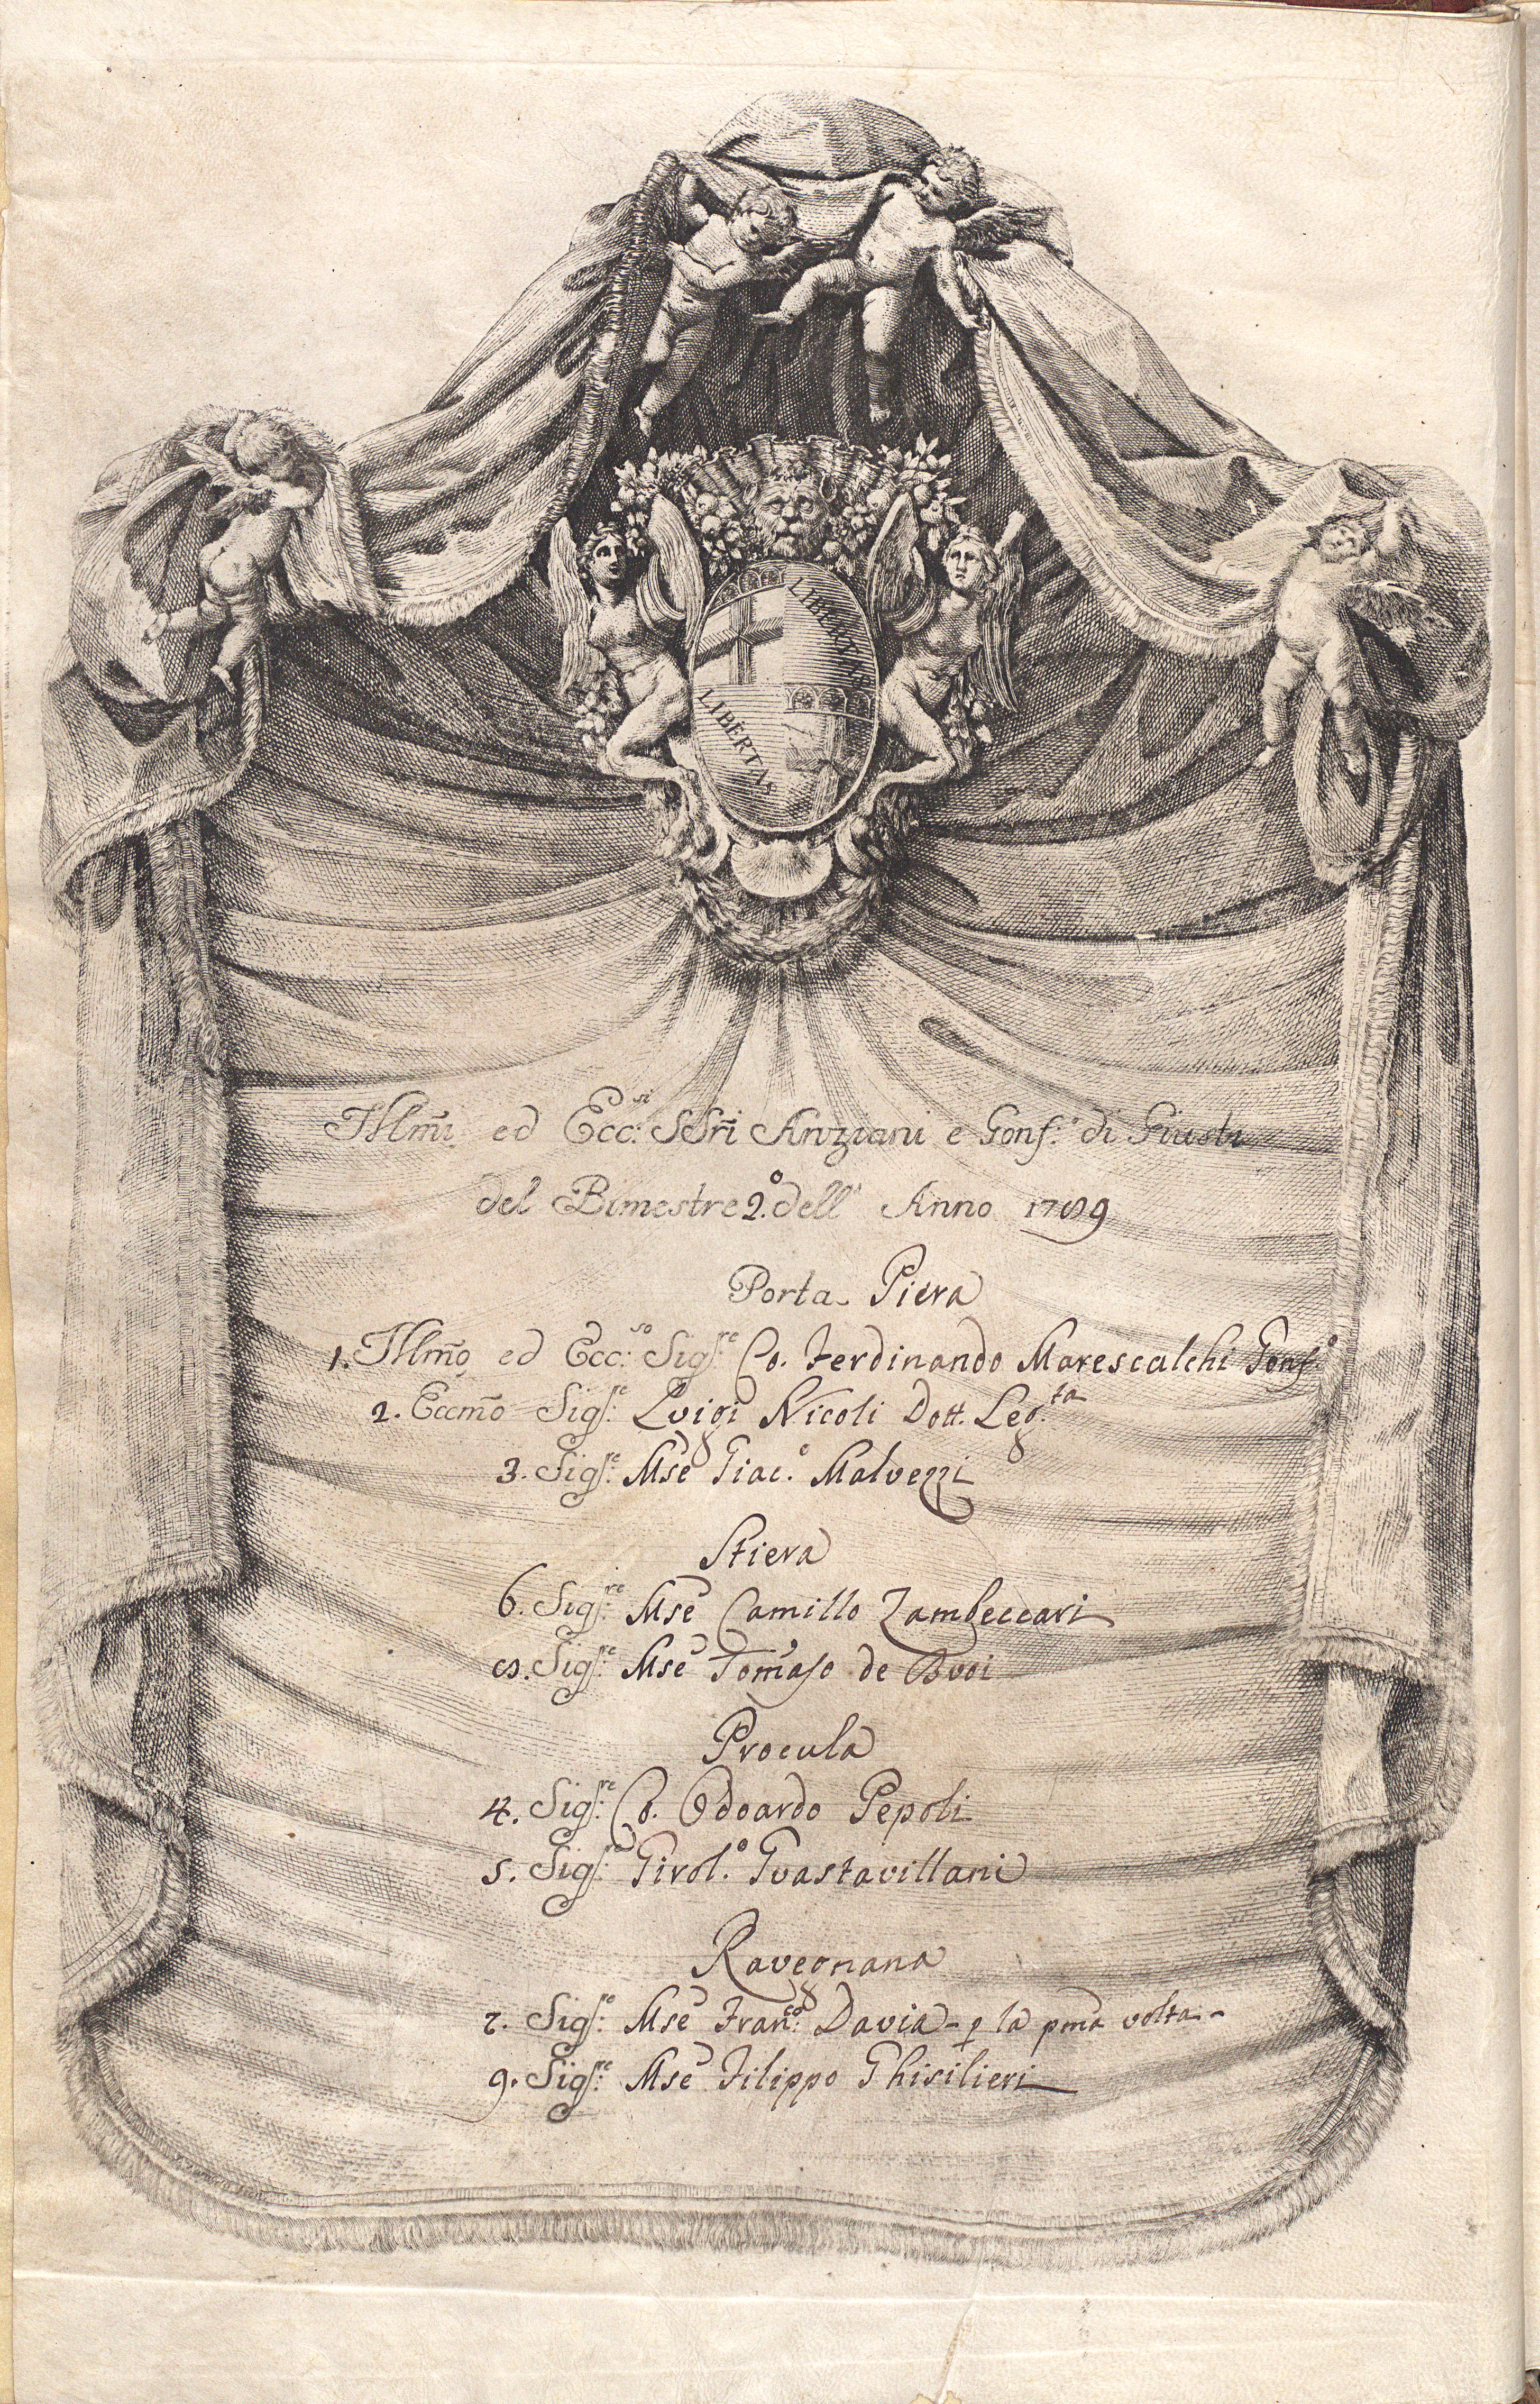 LIBERTAS
LIBERTAS
Illm̃i ed Ecc:si SSri Anziani e Gonf:e di Giusta
del Bimestre 2.o dell' Anno 1789
Porta Piera
1. Illm̃o ed Ecc:so Sig:re Co. Ferdinando Marescalchi Gonf:e
2. Eccm̃o Sig:re Luigi Nicoli Dott. Leg.ta
3. Sig:re Mse Giac.o Malvezzi
Stiera
6. Sig:re Mse Camillo Zambeccari
8. Sig:re Mse Tomaso de Buoi
Procula
4. Sig:re Co. Odoardo Pepoli
5. Sig:re Girol.o Guastavillani
Ravegnana
7. Sig:re Mse Fran:co Davia - p la pma volta -
9. Sig:re Mse Filippo Ghisilieri